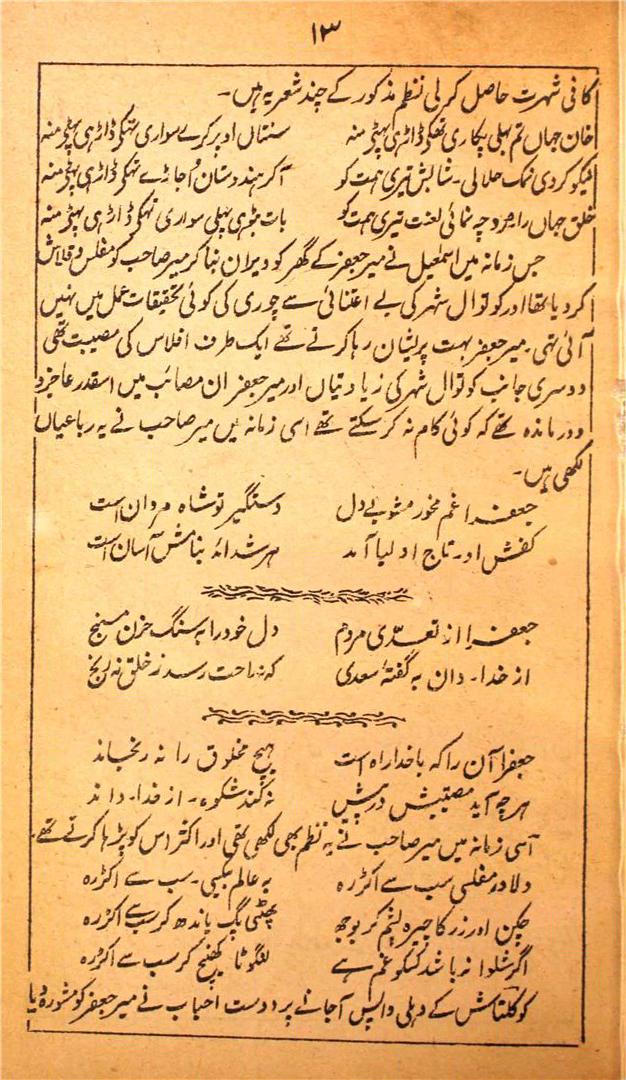 ۱۳
کافی شہرت حاصل کر لی نظم مذکور کے چند شعر یہ ہیں۔
خان جہاں تم پہلی پکاری تھکی ڈاڑہی پھٹی منہ سنتال اوپر کرے سواری تہکی ڈاڑہی پھٹی منہ
نیکو کردی نمک حلالی۔ شابش تیری ہمت کو آکر ہندوستان اجاڑے تہکی ڈاڑہی پھٹی منہ
خلق جہاں را ہر دو چہ نمائی لعنت تیری ہمت کو بات بڑہی پہلی سواری تہکی ڈاڑہی پھٹی منہ
جس زمانہ میں اسمعیل نے میر جعفر کے گھر کو ویران بنا کر میر صاحب کو مفلس و قلاش
کر دیا تھا اور کوتوال شہر کی بے اعتنائی سے چوری کی کوئی تحقیقات عمل میں نہیں
آئی تہی۔ میر جعفر بہت پریشان رہا کرتے تھے ایک طرف افلاس کی مصیبت تھی
دوسری جانب کوتوال شہر کی زیادتیاں اور میر جعفر ان مصائب میں اسقدر عاجز و
درماندہ تھے کہ کوئی کام نہ کر سکتے تھے اسی زمانہ میں میر صاحب نے یہ رباعیاں
لکھی ہیں۔
جعفرا غم مخور مشو بے دل دستگیر تو شاہ مردان است
کفش او۔ تاج اولیا آمد ہر شدائد بنامش آسان است
جعفرا از تعدّی مردم دل خود را بہ سنگ حزن مسنج
از خدا۔ دان بہ گفتۂ سعدی کہ نہ راحت رسد ز خلق نہ رنج
جعفرا آن را کہ با خدا راہ است ہیچ مخلوق را نہ رنجاند
ہرچہ آید مصیبتیش در پیش نہ کند شکوہ۔ از خدا۔ داند
اسی زمانہ میں میر صاحب نے یہ نظم بھی لکھی تھی اور اکثر اس کو پڑہا کرتے تھے۔
دلا در مفلسی سب سے اکڑ رہ بہ عالم بیکسی۔ سب سے اکڑ رہ
چکن اور زر کا چیرہ پشم کر بوجھ پھٹی پگ باندھ کر سب سے اکڑ رہ
اگر شلوار نہ باشد کسکو غم ہے لنگوٹا کھینچ کر سب سے اکڑ رہ
کوکلتاش کے دہلی واپس آجانے پر دوست احباب نے میر جعفر کو مشورہ دیا